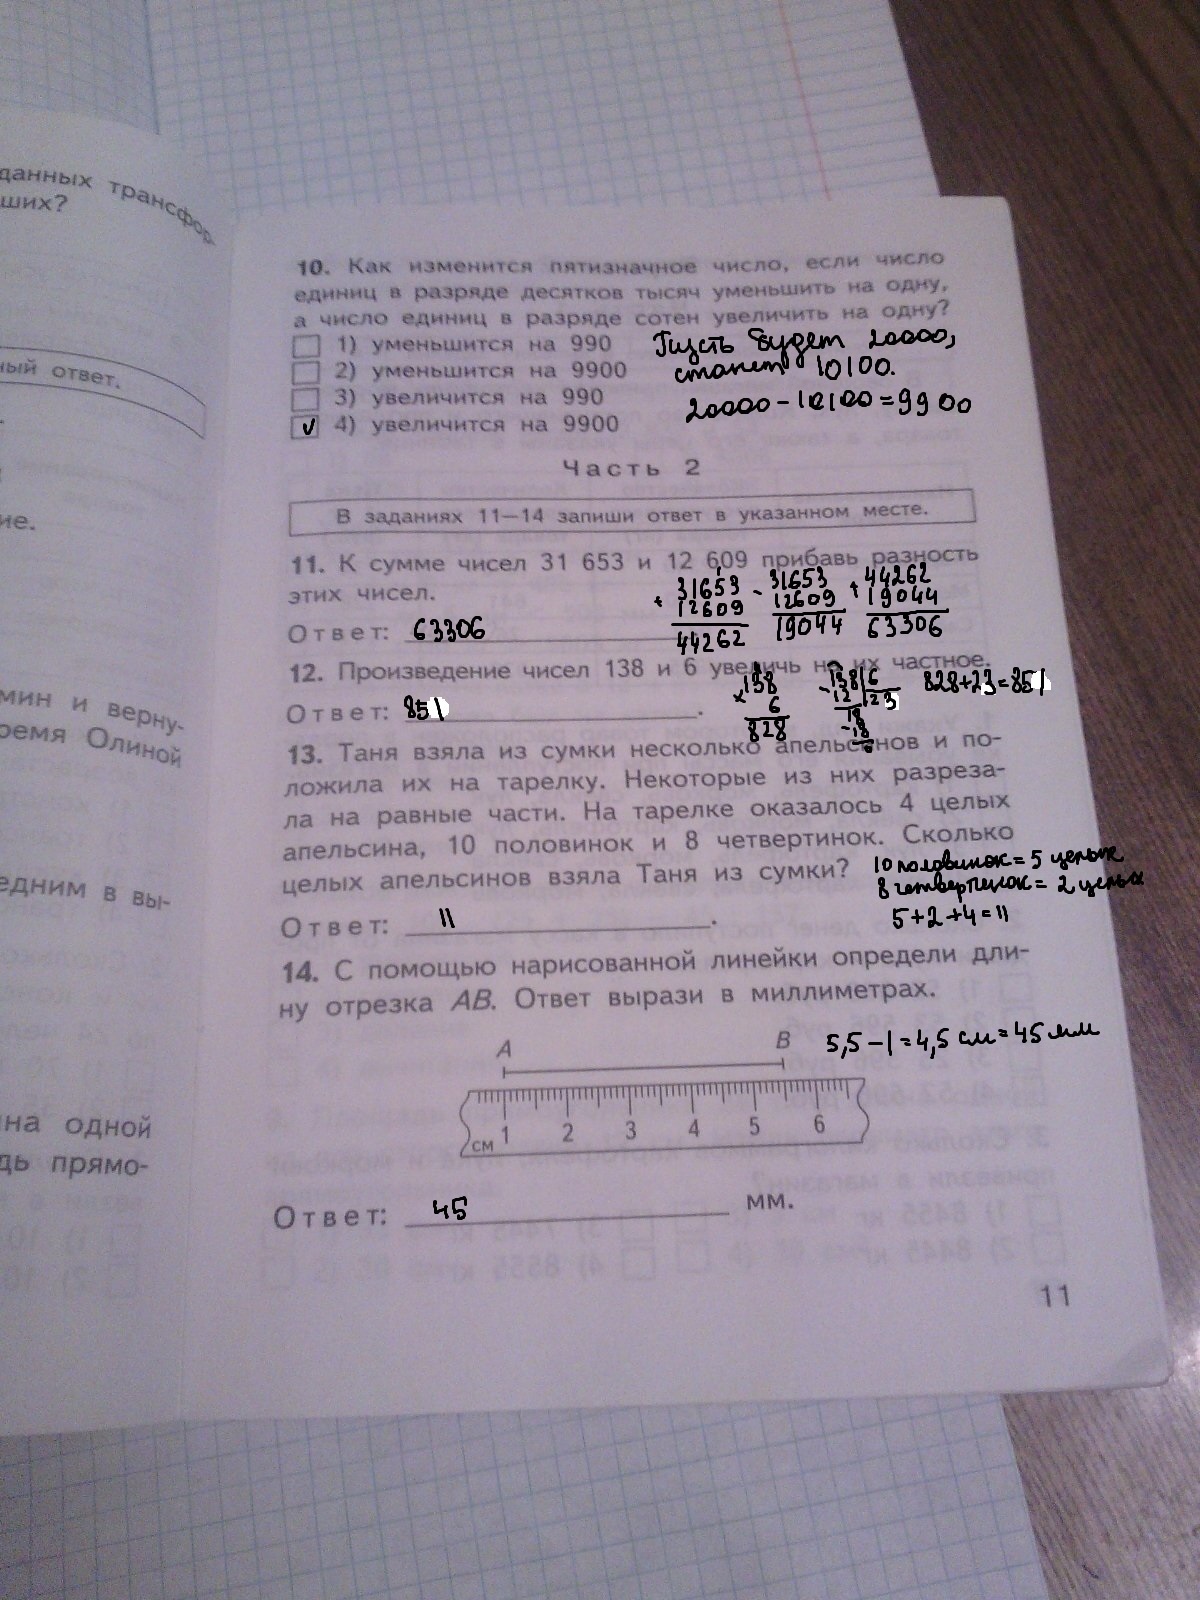 данных трансфор-
ших?
ный ответ.
ие.
мин и верну-
ремя Олиной
едним в вы-
на одной
дь прямо-
10. Как изменится пятизначное число, если число
единиц в разряде десятков тысяч уменьшить на одну,
а число единиц в разряде сотен увеличить на одну?
1) уменьшится на 990
2) уменьшится на 9900
3) увеличится на 990
v 4) увеличится на 9900
Пусть будет 20000,
станет 10100.
20000 - 10100 = 9900
Часть 2
В заданиях 11—14 запиши ответ в указанном месте.
11. К сумме чисел 31 653 и 12 609 прибавь разность
этих чисел.
31653 - 31653 + 44262
+ 12609 12609 19044
44262 19044 63306
Ответ: 63306
12. Произведение чисел 138 и 6 увеличь на их частное.
138 - 138 6 828+23=851
× 6 12 23
828 18
-18
0
Ответ: 851.
13. Таня взяла из сумки несколько апельсинов и по-
ложила их на тарелку. Некоторые из них разреза-
ла на равные части. На тарелке оказалось 4 целых
апельсина, 10 половинок и 8 четвертинок. Сколько
целых апельсинов взяла Таня из сумки?
10 половинок = 5 целых
8 четвертинок = 2 целых
5+2+4=11
Ответ: 11.
14. С помощью нарисованной линейки определи дли-
ну отрезка AB. Ответ вырази в миллиметрах.
A B
5,5-1=4,5 см=45 мм
см 1 2 3 4 5 6
Ответ: 45 мм.
11